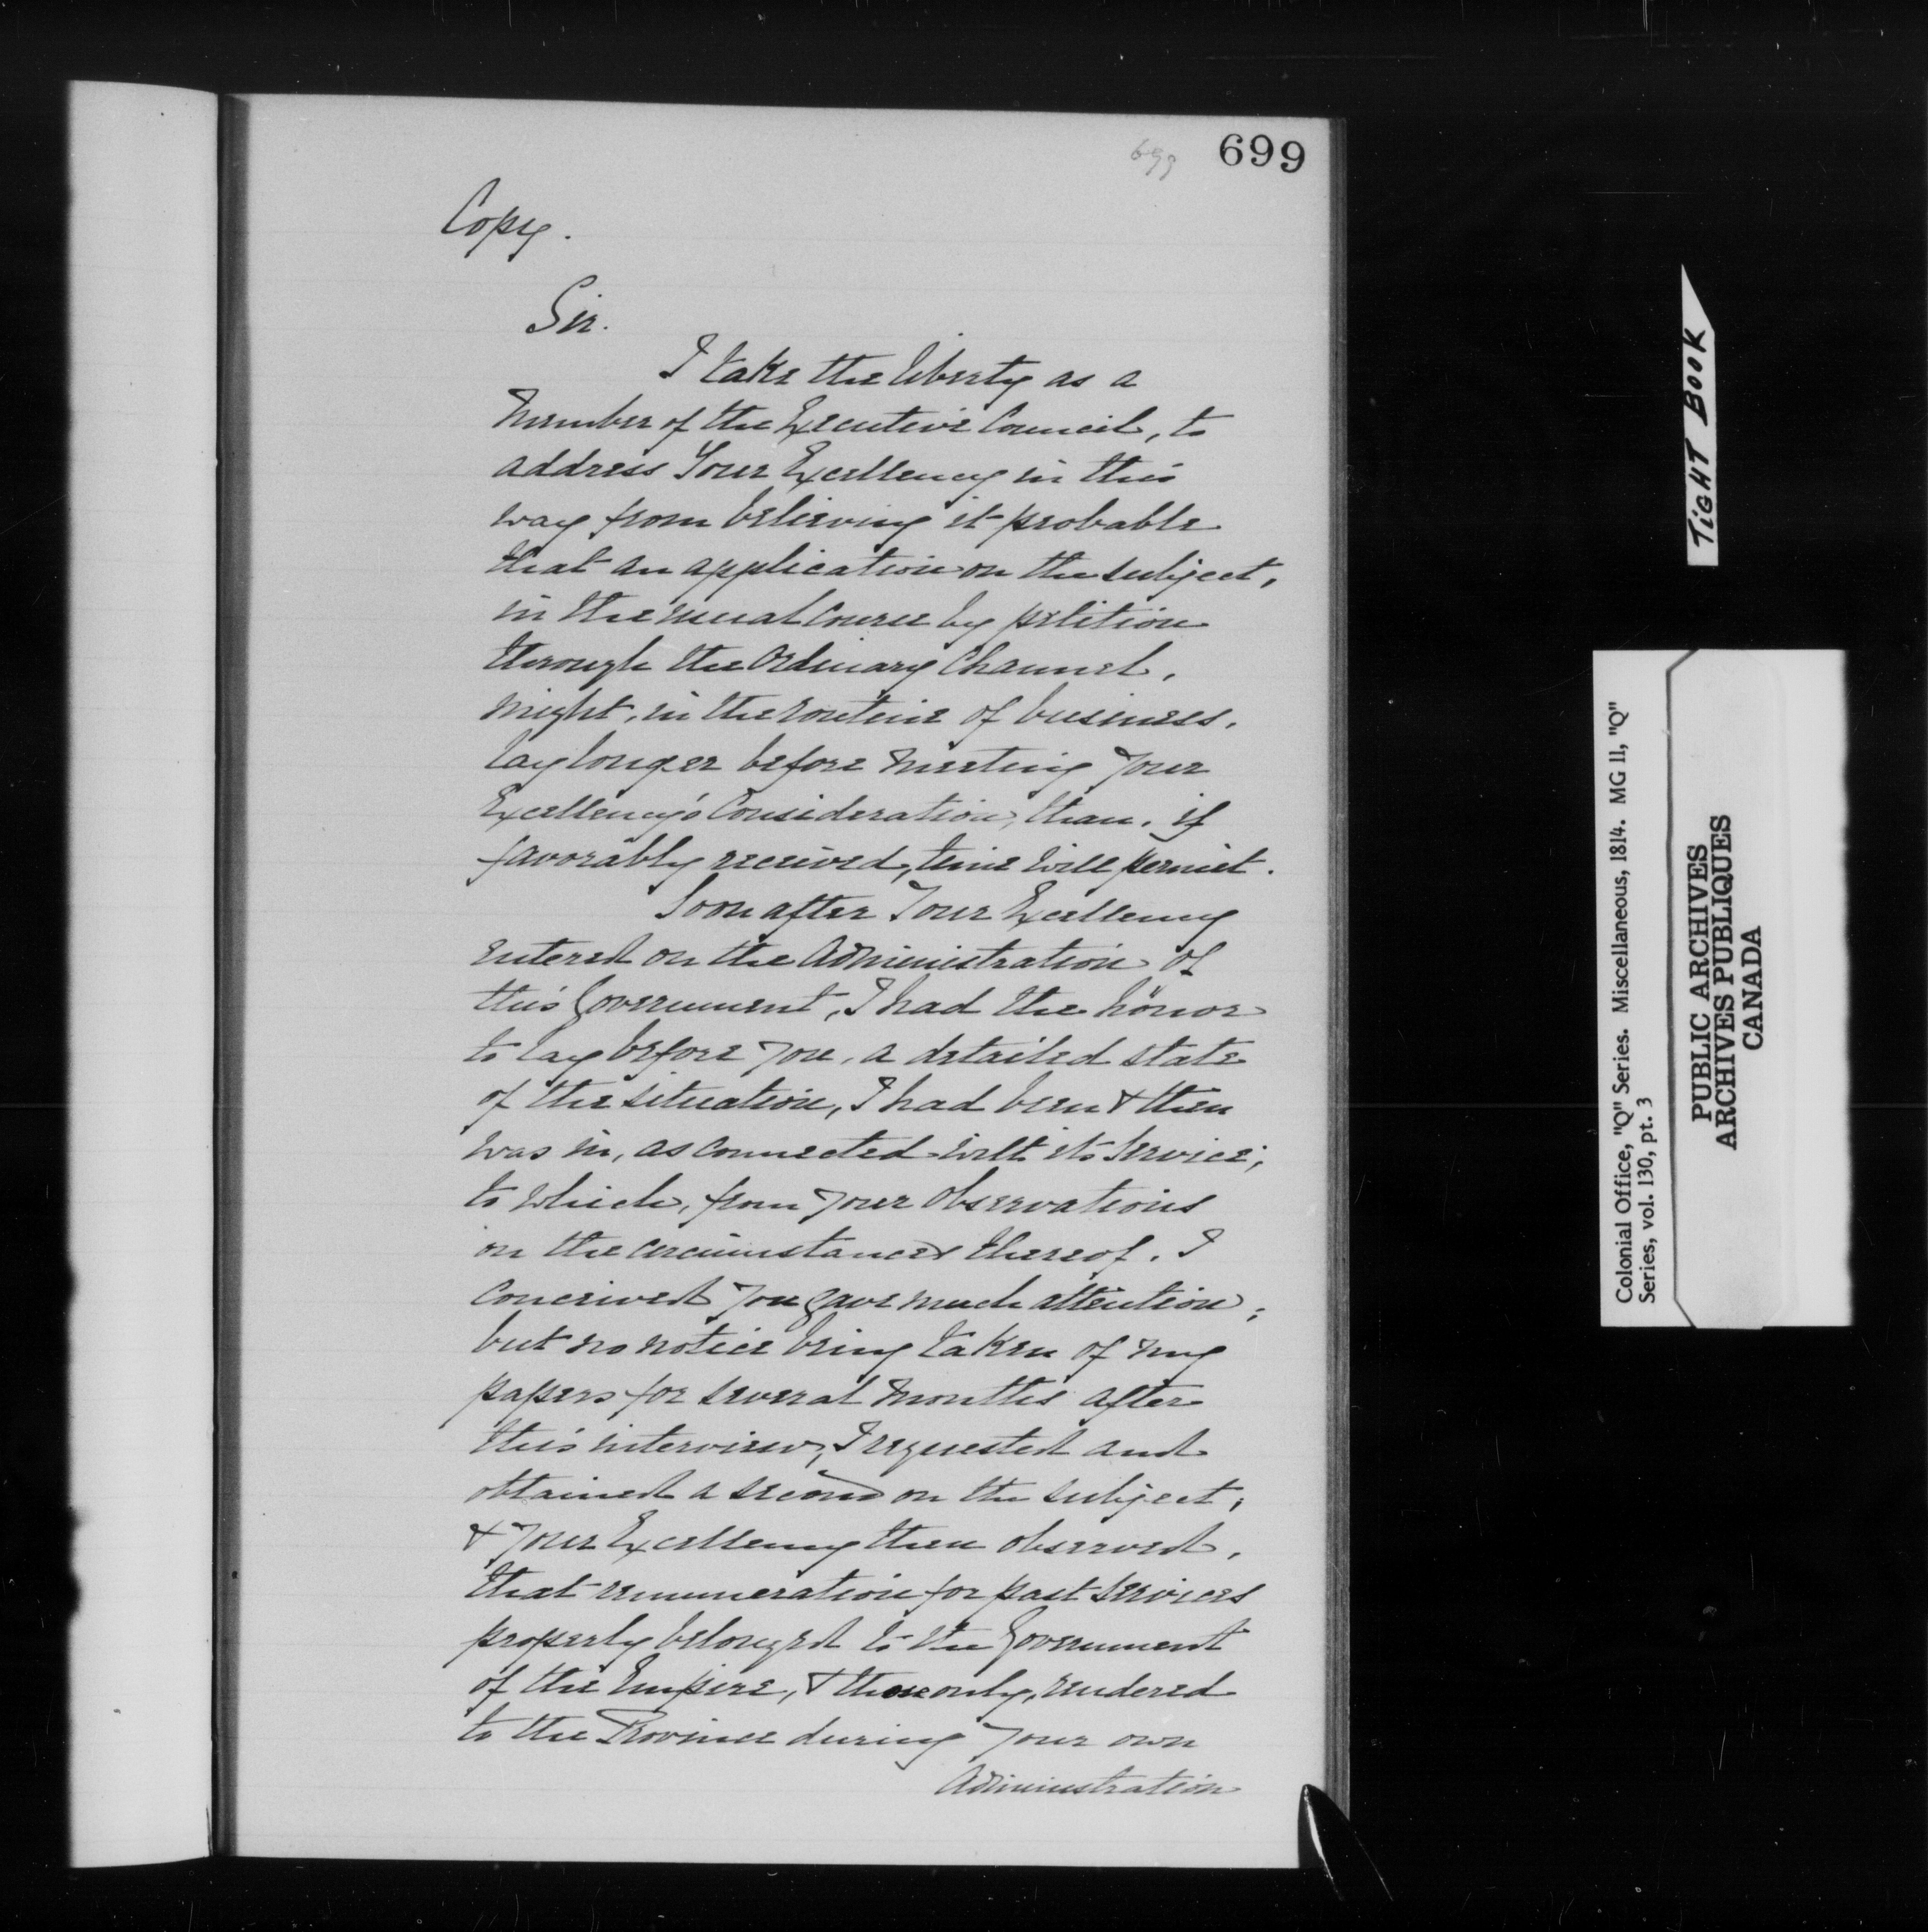 699 699
Copy.
Sir.
I take the liberty as a
Member of the Executive Council, to
address Your Excellency in this
way from believing it probable
that an application on the subject,
in the usual course by petition
through the Ordinary Channel,
might, in the routine of business,
lay longer before meeting your
Excellency's Consideration, than, if
favorably received, time will permit.
Soon after Your Excellency
entered on the Administration of
this Government, I had the honor
to lay before you, a detailed state
of the situation, I had been & then
was in, as connected with its service;
to which, from your observations
on the circumstances thereof, I
conceived you gave much attention;
but no notice being taken of my
papers for several months after
this interview, I requested and
obtained a second on the subject;
& Your Excellency then observed,
that remuneration for past services
properly belonged to the Government
of the Empire, & those only, rendered
to the Province during your own
Administration
TIGHT BOOK
Colonial Office, "Q" Series. Miscellaneous, 1814. MG 11, "Q"
Series, vol. 130, pt. 3
PUBLIC ARCHIVES
ARCHIVES PUBLIQUES
CANADA